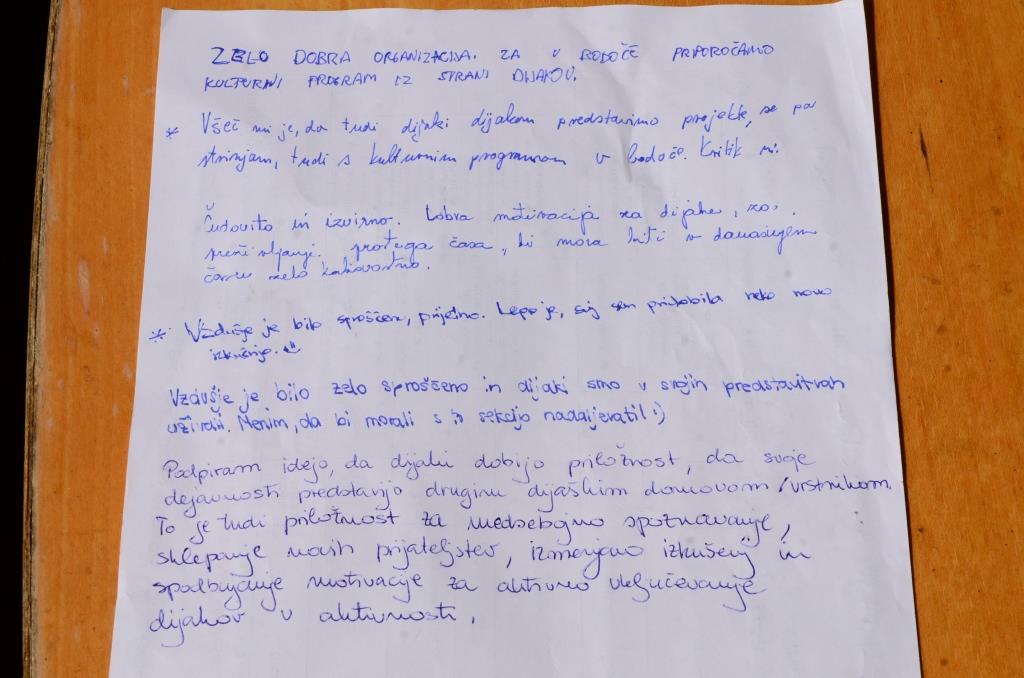 ZELO DOBRA ORGANIZACIJA. ZA V BODOČE PRIPOROČAMO
KULTURNI PROGRAM IZ STRANI DIJAKOV.
* Všeč mi je, da tudi dijaki dijakom predstavimo projekte, se pa
strinjam, tudi s kulturnim programom v bodoče. Kritik ni.
Čudovito in izvirno. Dobra motivacija za dijake, za
preživljanje prostega časa, ki mora biti v današnjem
času zelo kakovostno.
* Vzdušje je bilo sproščeno, prijetno. Lepo je, saj sem pridobila neko novo
izkušnjo.
Vzdušje je bilo zelo sproščeno in dijaki smo v svojih predstavitvah
uživali. Menim, da bi morali s to sekcijo nadaljevati! :)
Podpiram idejo, da dijaki dobijo priložnost, da svoje
dejavnosti predstavijo drugim dijaškim domovom/vrstnikom.
To je tudi priložnost za medsebojno spoznavanje,
sklepanje novih prijateljstev, izmenjavo izkušenj in
spodbujanje motivacije za aktivno vključevanje
dijakov v aktivnosti.